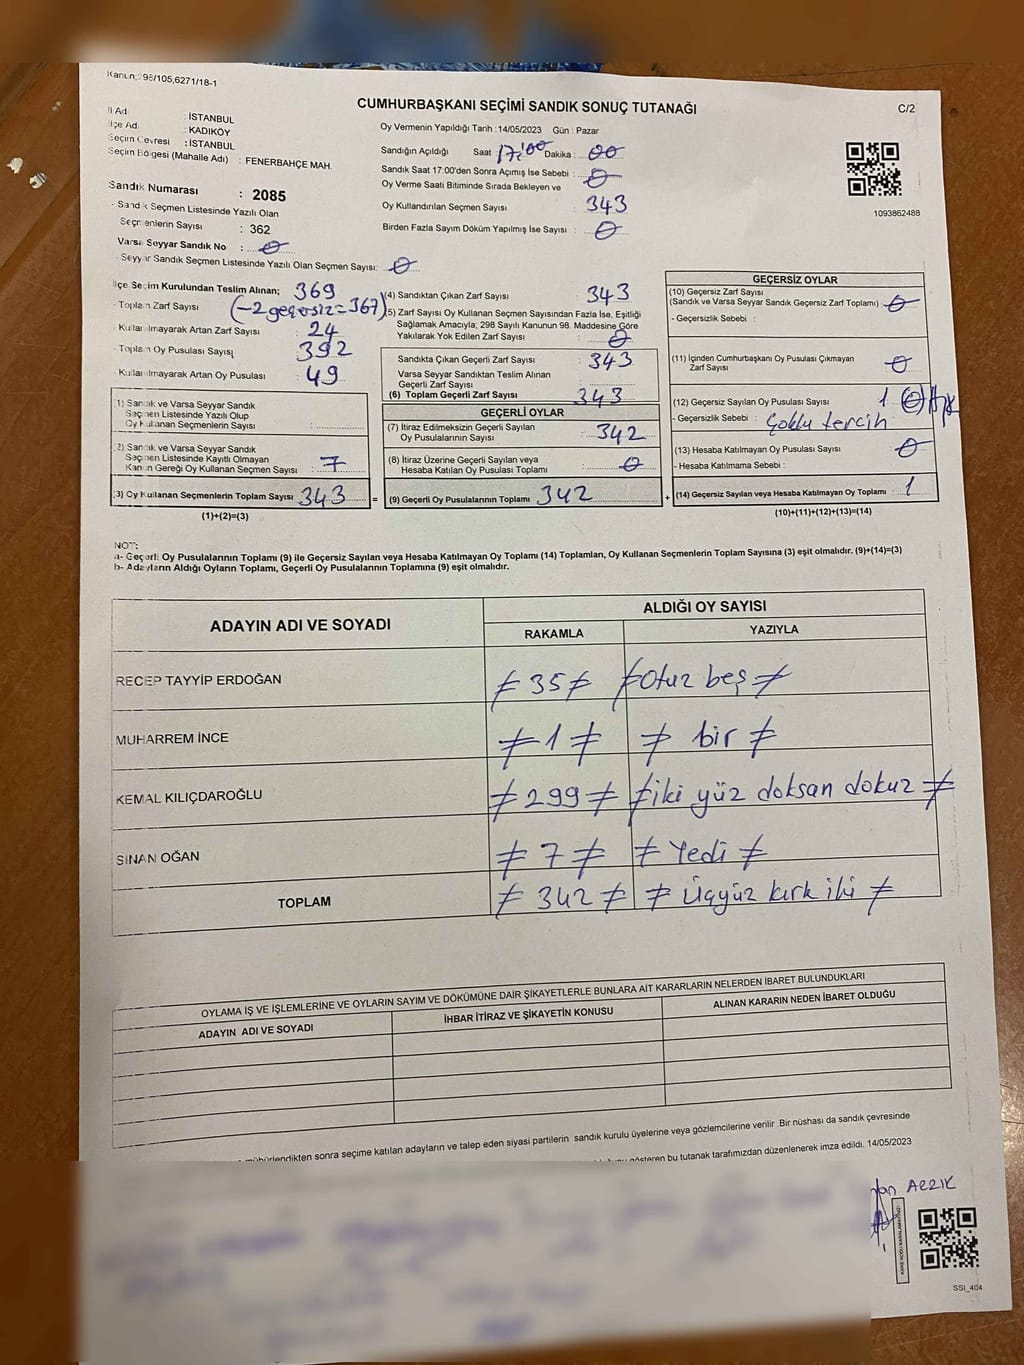 Kanun: 298/105,6271/18-1
CUMHURBAŞKANI SEÇİMİ SANDIK SONUÇ TUTANAĞI
C/2
İl Adı : İSTANBUL
İlçe Adı : KADIKÖY
Seçim Çevresi : İSTANBUL
Seçim Bölgesi (Mahalle Adı) : FENERBAHÇE MAH.
Sandık Numarası : 2085
Sandık Seçmen Listesinde Yazılı Olan
Seçmenlerin Sayısı : 362
Varsa Seyyar Sandık No : 0
Seyyar Sandık Seçmen Listesinde Yazılı Olan Seçmen Sayısı: 0
Oy Vermenin Yapıldığı Tarih : 14/05/2023 Gün : Pazar
Sandığın Açıldığı Saat 17:00 Dakika : 00
Sandık Saat 17:00'den Sonra Açımış İse Sebebi : 0
Oy Verme Saati Bitiminde Sırada Bekleyen ve
Oy Kullandırılan Seçmen Sayısı : 343
Birden Fazla Sayım Döküm Yapılmış İse Sayısı : 0
1093862488
İlçe Seçim Kurulundan Teslim Alınan; 369
- Toplam Zarf Sayısı (-2 geçersiz=367)
- Kullanılmayarak Artan Zarf Sayısı : 24
- Toplam Oy Pusulası Sayısı : 392
- Kullanılmayarak Artan Oy Pusulası : 49
(1) Sandık ve Varsa Seyyar Sandık
Seçmen Listesinde Yazılı Olup
Oy Kullanan Seçmenlerin Sayısı :
(2) Sandık ve Varsa Seyyar Sandık
Seçmen Listesinde Kayıtlı Olmayan
Kanun Gereği Oy Kullanan Seçmen Sayısı : 7
(3) Oy Kullanan Seçmenlerin Toplam Sayısı : 343 =
(1)+(2)=(3)
(4) Sandıktan Çıkan Zarf Sayısı : 343
(5) Zarf Sayısı Oy Kullanan Seçmen Sayısından Fazla İse, Eşitliği
Sağlamak Amacıyla; 298 Sayılı Kanunun 98. Maddesine Göre
Yakılarak Yok Edilen Zarf Sayısı : 0
Sandıkta Çıkan Geçerli Zarf Sayısı : 343
Varsa Seyyar Sandıktan Teslim Alınan
Geçerli Zarf Sayısı :
(6) Toplam Geçerli Zarf Sayısı : 343
GEÇERLİ OYLAR
(7) İtiraz Edilmeksizin Geçerli Sayılan
Oy Pusulalarının Sayısı : 342
(8) İtiraz Üzerine Geçerli Sayılan veya
Hesaba Katılan Oy Pusulası Toplamı : 0
(9) Geçerli Oy Pusulalarının Toplamı : 342 +
GEÇERSİZ OYLAR
(10) Geçersiz Zarf Sayısı
(Sandık ve Varsa Seyyar Sandık Geçersiz Zarf Toplamı) : 0
- Geçersizlik Sebebi :
(11) İçinden Cumhurbaşkanı Oy Pusulası Çıkmayan
Zarf Sayısı : 0
(12) Geçersiz Sayılan Oy Pusulası Sayısı : 1 0
- Geçersizlik Sebebi : Çoklu tercih
(13) Hesaba Katılmayan Oy Pusulası Sayısı : 0
- Hesaba Katılmama Sebebi :
(14) Geçersiz Sayılan veya Hesaba Katılmayan Oy Toplamı : 1
(10)+(11)+(12)+(13)=(14)
NOT:
a- Geçerli Oy Pusulalarının Toplamı (9) ile Geçersiz Sayılan veya Hesaba Katılmayan Oy Toplamı (14) Toplamları, Oy Kullanan Seçmenlerin Toplam Sayısına (3) eşit olmalıdır. (9)+(14)=(3)
b- Adayların Aldığı Oyların Toplamı, Geçerli Oy Pusulalarının Toplamına (9) eşit olmalıdır.
ADAYIN ADI VE SOYADI
ALDIĞI OY SAYISI
RAKAMLA YAZIYLA
RECEP TAYYİP ERDOĞAN ≠ 35 ≠ ≠ Otuz beş ≠
MUHARREM İNCE ≠ 1 ≠ ≠ bir ≠
KEMAL KILIÇDAROĞLU ≠ 299 ≠ ≠ iki yüz doksan dokuz ≠
SİNAN OĞAN ≠ 7 ≠ ≠ Yedi ≠
TOPLAM ≠ 342 ≠ ≠ Üçyüz kırk iki ≠
OYLAMA İŞ VE İŞLEMLERİNE VE OYLARIN SAYIM VE DÖKÜMÜNE DAİR ŞİKAYETLERLE BUNLARA AİT KARARLARIN NELERDEN İBARET BULUNDUKLARI
ADAYIN ADI VE SOYADI İHBAR İTİRAZ VE ŞİKAYETİN KONUSU ALINAN KARARIN NEDEN İBARET OLDUĞU
mühürlendikten sonra seçime katılan adayların ve talep eden siyasi partilerin sandık kurulu üyelerine veya gözlemcilerine verilir Bir nüshası da sandık çevresinde
gösteren bu tutanak tarafımızdan düzenlenerek imza edildi. 14/05/2023
SSI_404